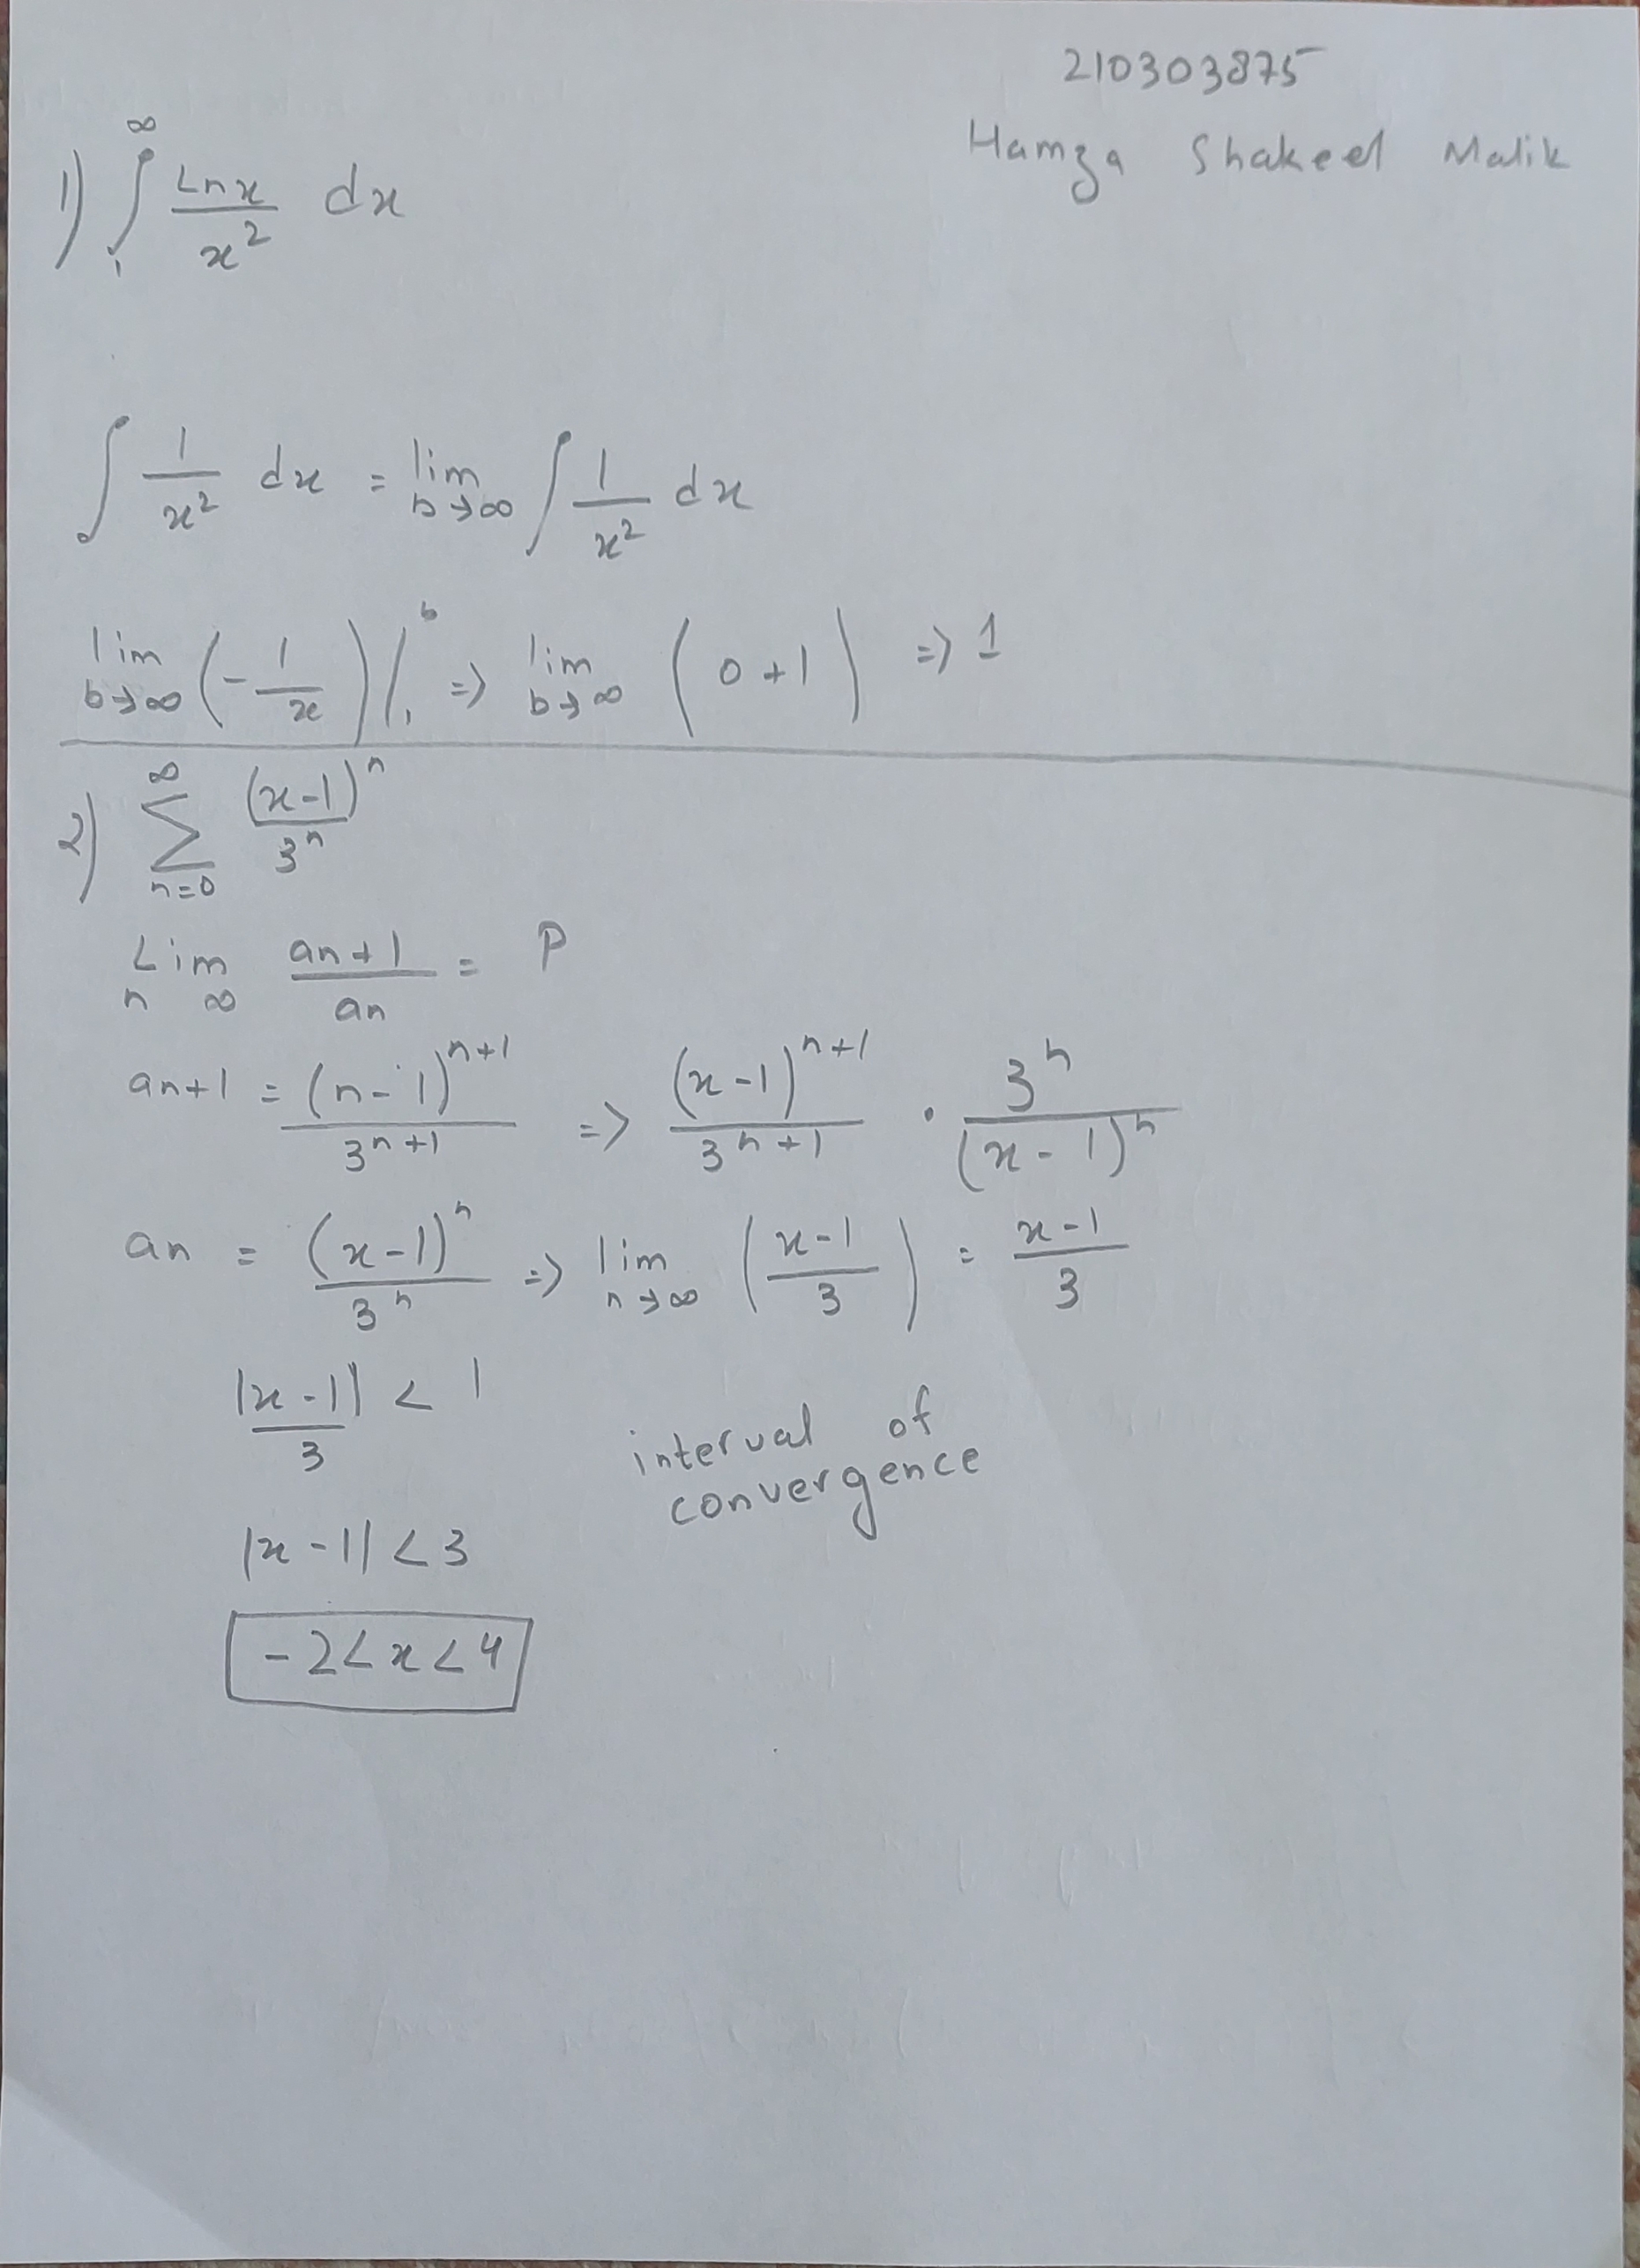 210303875
Hamza Shakeel Malik
1) ∫₁^∞ Lnx/x² dx
∫ 1/x² dx = lim b→∞ ∫ 1/x² dx
lim b→∞ (-1/x)|₁^b => lim b→∞ (0+1) => 1
2) ∑ n=0 ^∞ (x-1)^n/3^n
Lim n ∞ an+1/an = P
an+1 = (n-1)^(n+1)/3^(n+1) => (x-1)^(n+1)/3^(n+1) · 3^n/(x-1)^n
an = (x-1)^n/3^n => lim n→∞ (x-1/3) = x-1/3
|x-1|/3 < 1
interval of
convergence
|x-1| < 3
-2<x<4